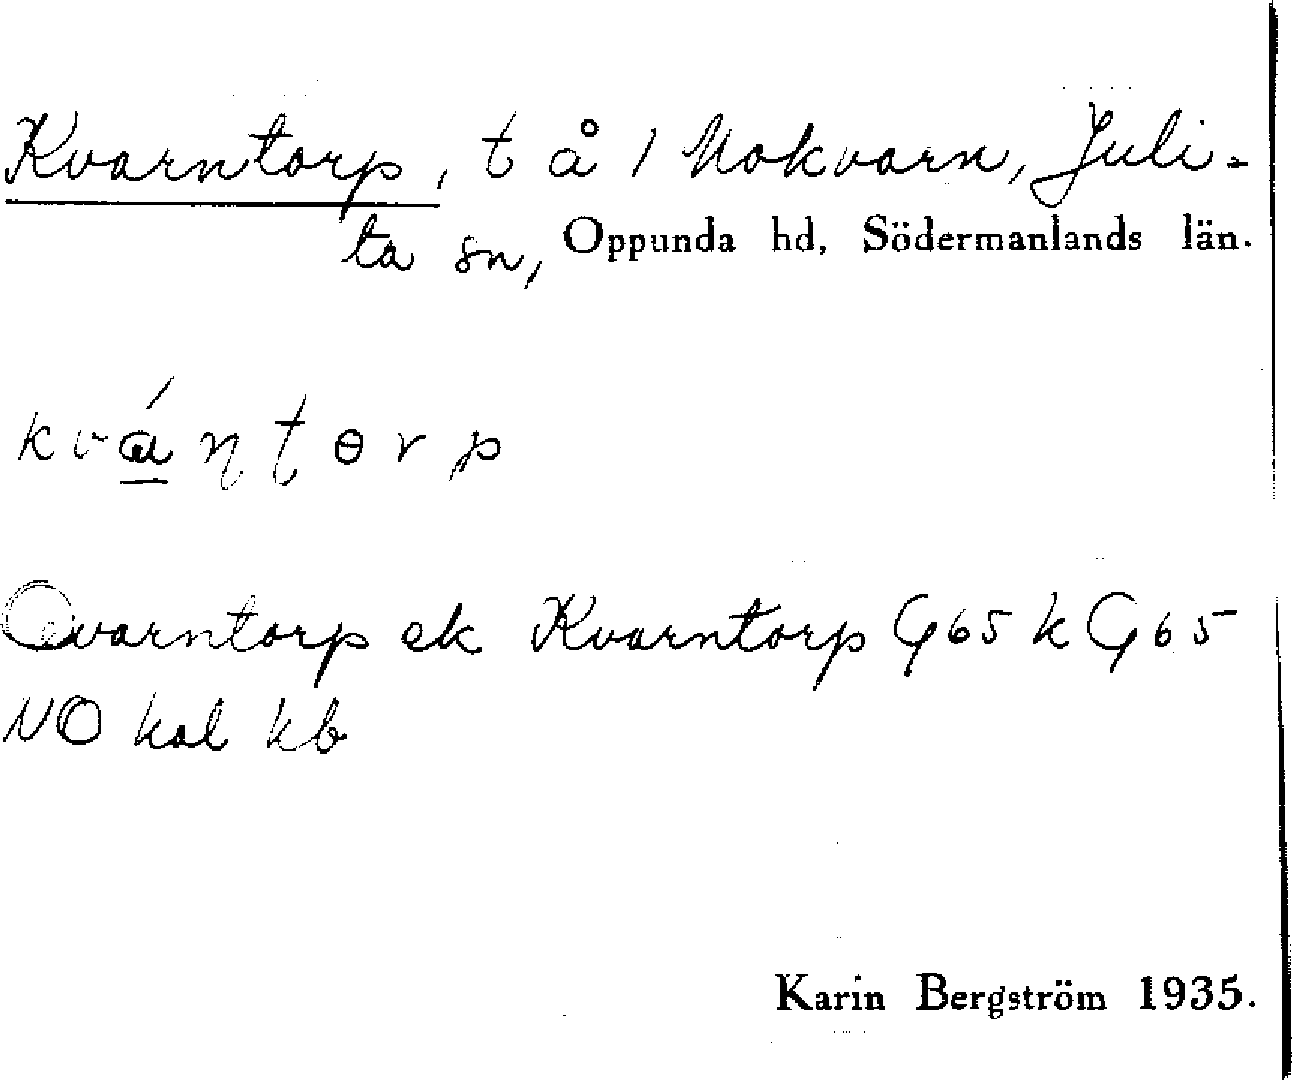 Kvarntorp, t å 1 Mokvarn, Juli-
ta sn, Oppunda hd, Södermanlands län.
kvántɵrp
Qvarntorp ek Kvarntorp G65 k G65
NO kal kb
Karin Bergström 1935.